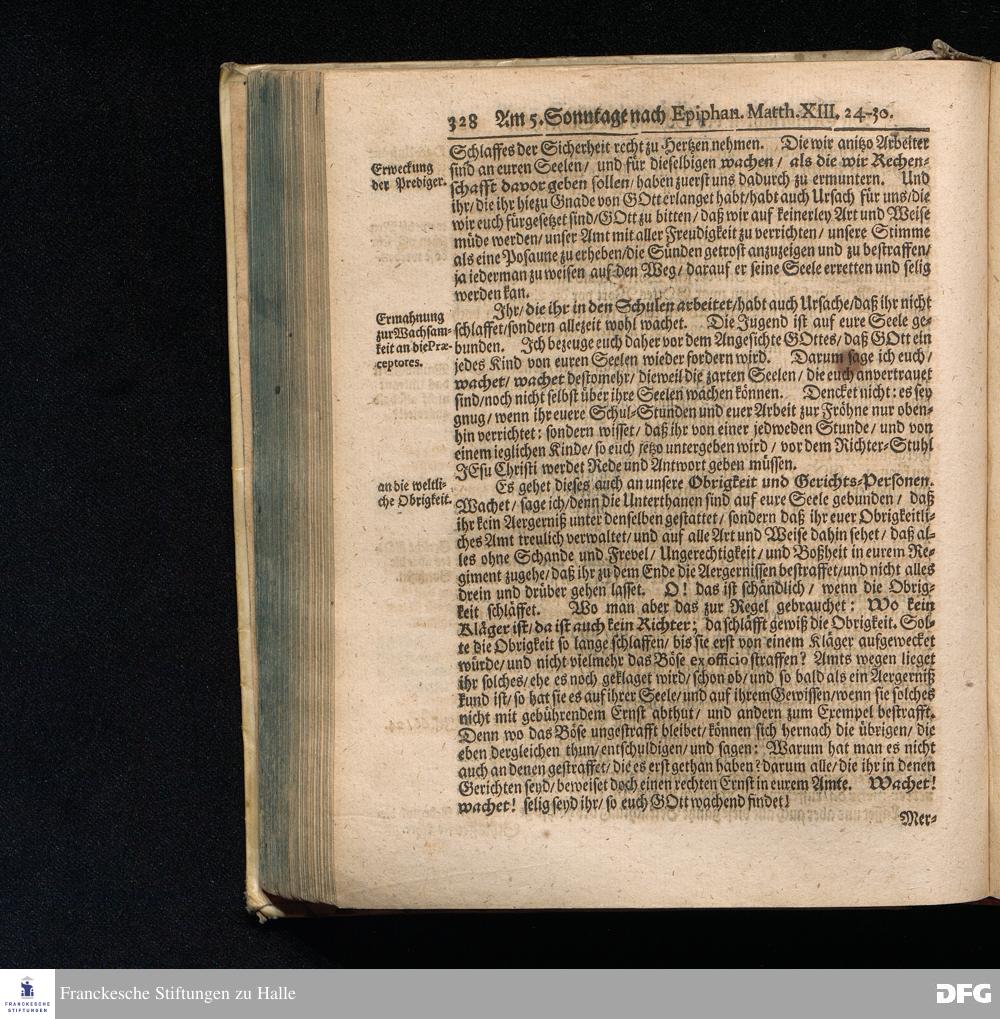 328 Am 5. Sonntage nach Epiphan. Matth. XIII, 24-30.
Schlaffes der Sicherheit recht zu Hertzen nehmen. Die wir anitzo Arbeiter
Erweckung
der Prediger.
sind an euren Seelen/ und für dieselbigen wachen/ als die wir Rechen-
schafft davor geben sollen/ haben zuerst uns dadurch zu ermuntern. Und
ihr/ die ihr hiezu Gnade von GOtt erlanget habt/ habt auch Ursach für uns/ die
wir euch fürgesetzet sind/ GOtt zu bitten/ daß wir auf keinerley Art und Weise
müde werden/ unser Amt mit aller Freudigkeit zu verrichten/ unsere Stimme
als eine Posaune zu erheben/ die Sünden getrost anzuzeigen und zu bestraffen/
ja iederman zu weisen auf den Weg/ darauf er seine Seele erretten und selig
werden kan.
Ermahnung
zur Wachsam-
keit an die Præ-
ceptores.
Ihr/ die ihr in den Schulen arbeitet/ habt auch Ursache/ daß ihr nicht
schlaffet/ sondern allezeit wohl wachet. Die Jugend ist auf eure Seele ge-
bunden. Ich bezeuge euch daher vor dem Angesichte GOttes/ daß GOtt ein
jedes Kind von euren Seelen wieder fordern wird. Darum sage ich euch/
wachet/ wachet destomehr/ dieweil die zarten Seelen/ die euch anvertrauet
sind/ noch nicht selbst über ihre Seelen wachen können. Dencket nicht: es sey
gnug/ wenn ihr euere Schul-Stunden und euer Arbeit zur Fröhne nur oben-
hin verrichtet: sondern wisset/ daß ihr von einer jedweden Stunde/ und von
einem ieglichen Kinde/ so euch jetzo untergeben wird/ vor dem Richter-Stuhl
JEsu Christi werdet Rede und Antwort geben müssen.
an die weltli-
che Obrigkeit.
Es gehet dieses auch an unsere Obrigkeit und Gerichts-Personen.
Wachet/ sage ich/ denn die Unterthanen sind auf eure Seele gebunden/ daß
ihr kein Aergerniß unter denselben gestattet/ sondern daß ihr euer Obrigkeitli-
ches Amt treulich verwaltet/ und auf alle Art und Weise dahin sehet/ daß al-
les ohne Schande und Frevel/ Ungerechtigkeit/ und Boßheit in eurem Re-
giment zugehe/ daß ihr zu dem Ende die Aergernissen bestraffet/ und nicht alles
drein und drüber gehen lasset. O! das ist schändlich/ wenn die Obrig-
keit schläffet. Wo man aber das zur Regel gebrauchet: Wo kein
Kläger ist/ da ist auch kein Richter; da schläfft gewiß die Obrigkeit. Sol-
te die Obrigkeit so lange schlaffen/ bis sie erst von einem Kläger aufgewecket
würde/ und nicht vielmehr das Böse ex officio straffen? Amts wegen lieget
ihr solches/ ehe es noch geklaget wird/ schon ob/ und so bald als ein Aergerniß
kund ist/ so hat sie es auf ihrer Seele/ und auf ihrem Gewissen/ wenn sie solches
nicht mit gebührendem Ernst abthut/ und andern zum Exempel bestrafft.
Denn wo das Böse ungestrafft bleibet/ können sich hernach die übrigen/ die
eben dergleichen thun/ entschuldigen/ und sagen: Warum hat man es nicht
auch an denen gestraffet/ die es erst gethan haben? darum alle/ die ihr in denen
Gerichten seyd/ beweiset doch einen rechten Ernst in eurem Amte. Wachet!
wachet! selig seyd ihr/ so euch GOtt wachend findet!
Mer-
FRANCKESCHE
STIFTUNGEN
Franckesche Stiftungen zu Halle
DFG